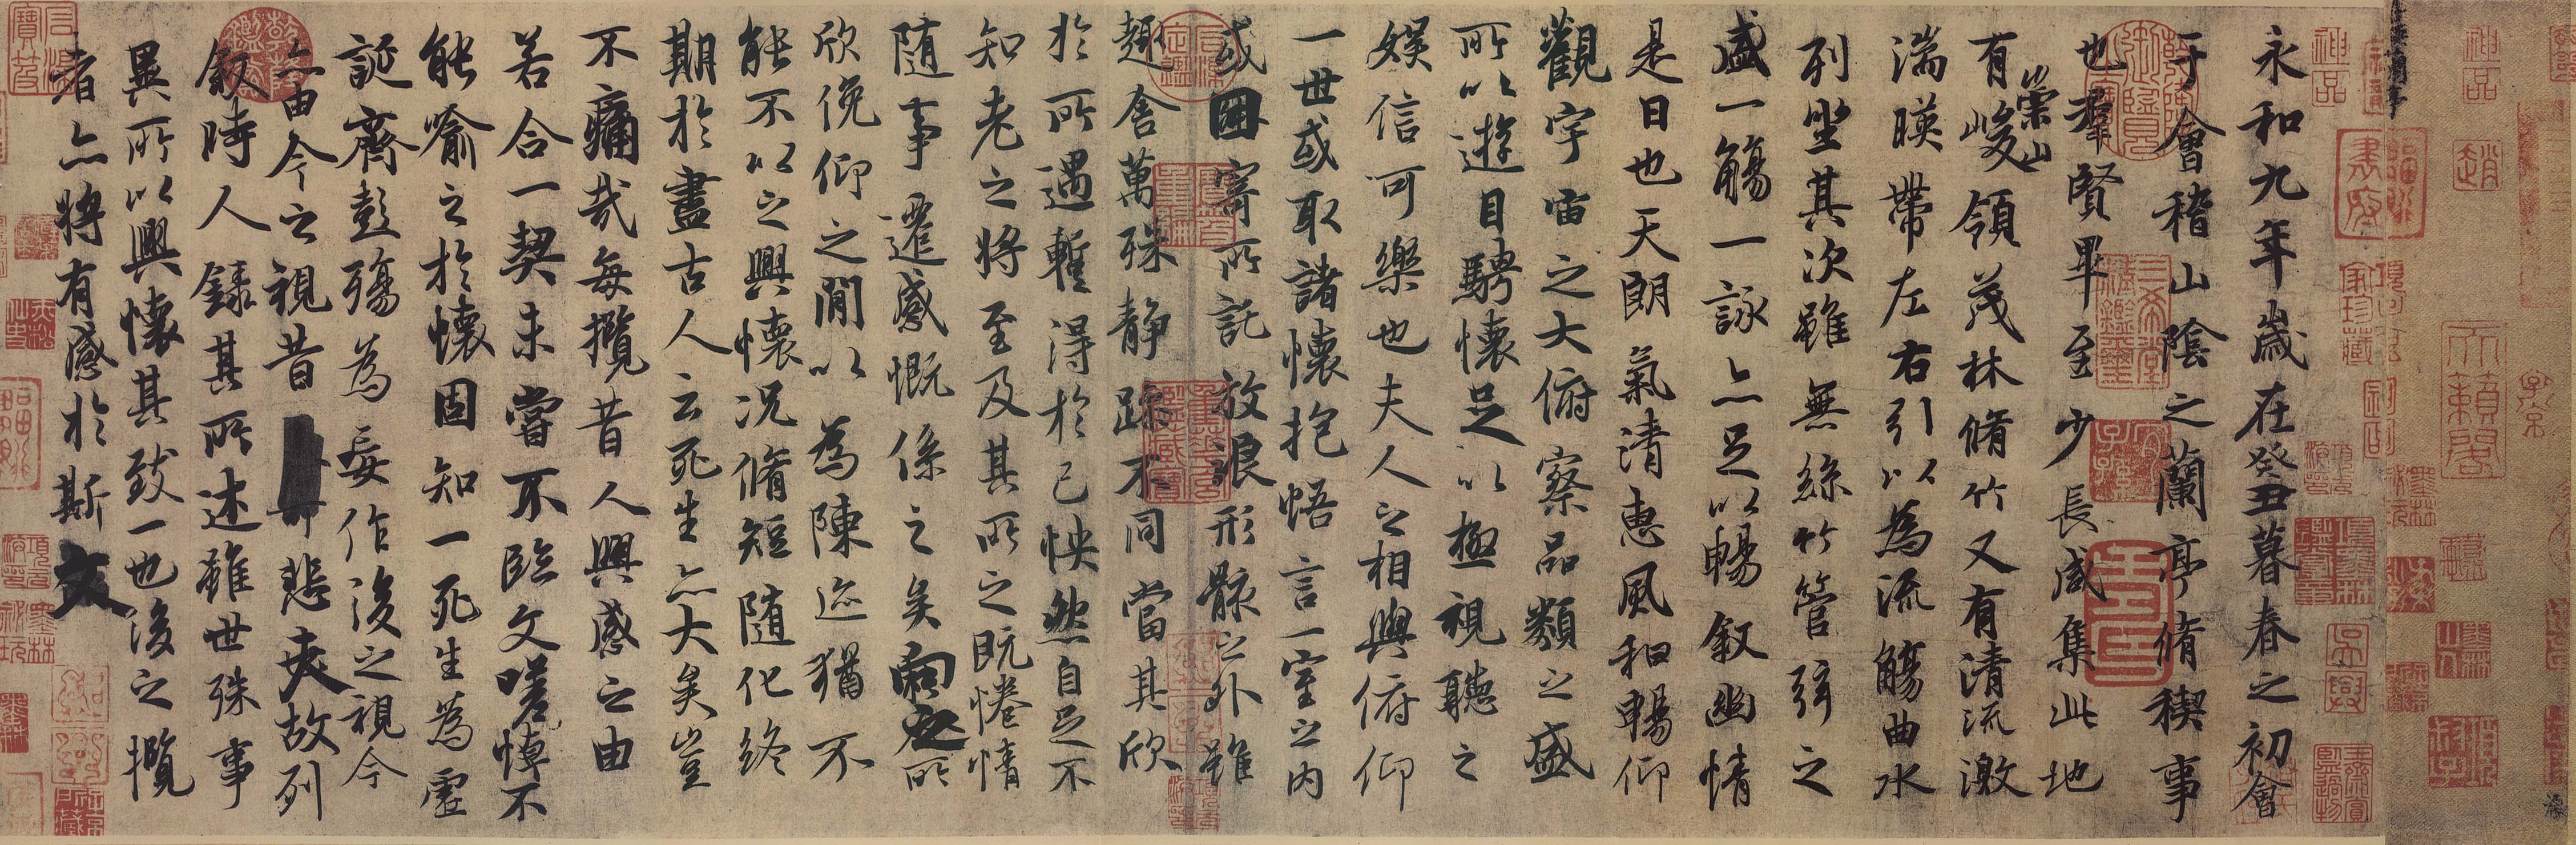 永和九年歲在癸丑暮春之初會
于會稽山陰之蘭亭脩稧事
也群賢畢至少長咸集此地
有崇山峻領茂林脩竹又有清流激
湍暎帶左右引以為流觴曲水
列坐其次雖無絲竹管弦之
盛一觴一詠亦足以暢叙幽情
是日也天朗氣清惠風和暢仰
觀宇宙之大俯察品類之盛
所以遊目騁懷足以極視聽之
娛信可樂也夫人之相與俯仰
一世或取諸懷抱悟言一室之內
或因寄所託放浪形骸之外雖
趣舍萬殊靜躁不同當其欣
於所遇暫得於己怏然自足不
知老之將至及其所之既惓情
隨事遷感慨係之矣向之所
欣俛仰之閒以為陳迹猶不
能不以之興懷況脩短隨化終
期於盡古人云死生亦大矣豈
不痛哉每攬昔人興感之由
若合一契未嘗不臨文嗟悼不
能喻之於懷固知一死生為虛
誕齊彭殤為妄作後之視今
亦由今之視昔悲夫故列
叙時人錄其所述雖世殊事
異所以興懷其致一也後之攬
者亦將有感於斯文
神品